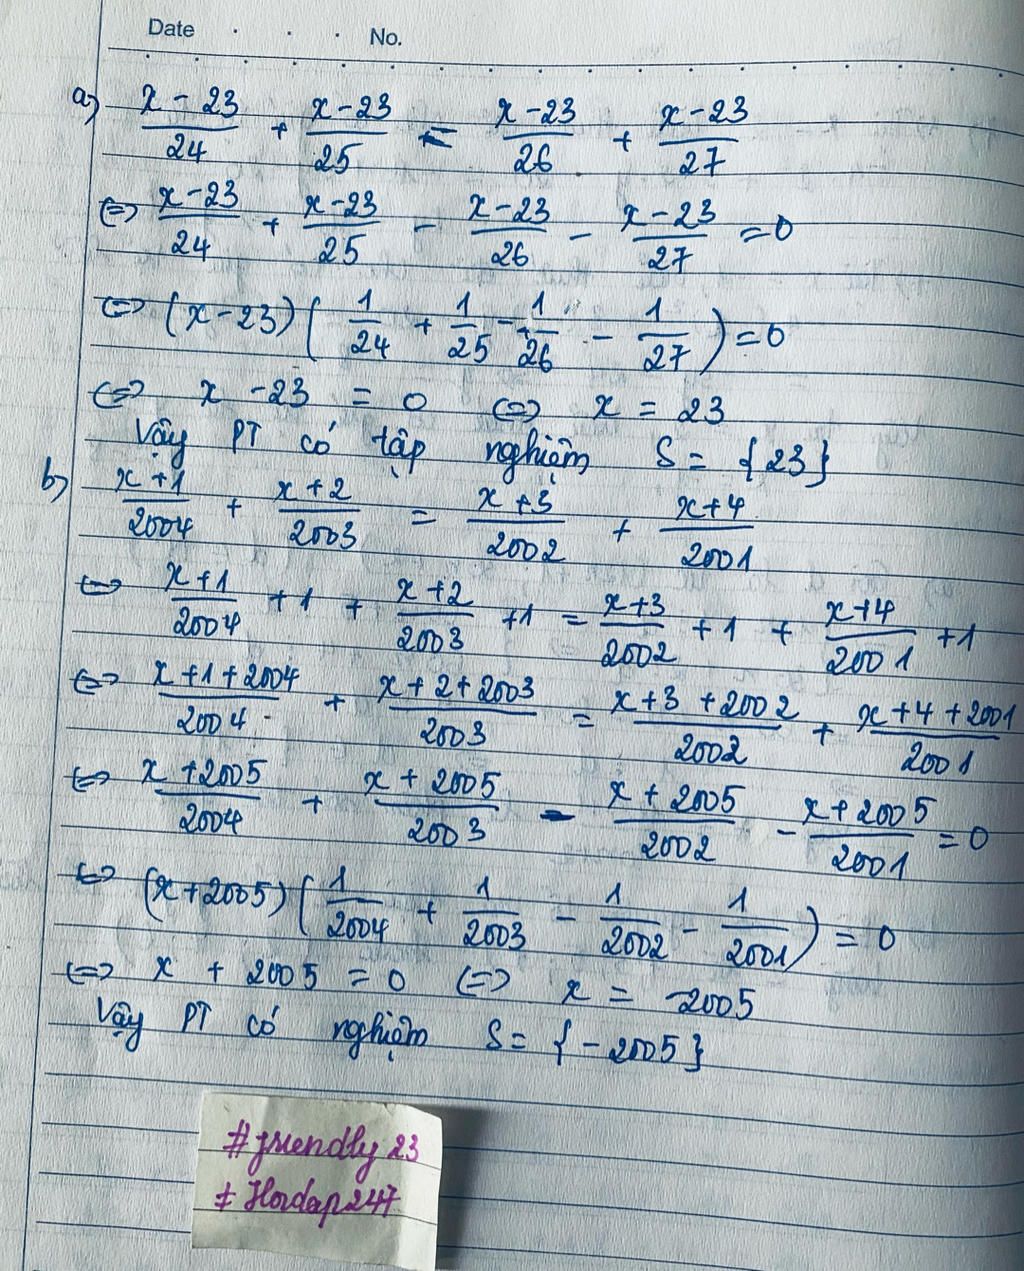 Date . . . No.
a) (x - 23)/24 + (x - 23)/25 = (x - 23)/26 + (x - 23)/27
⇔ (x - 23)/24 + (x - 23)/25 - (x - 23)/26 - (x - 23)/27 = 0
⇔ (x - 23)(1/24 + 1/25 - 1/26 - 1/27) = 0
⇔ x - 23 = 0 ⇔ x = 23
Vậy PT có tập nghiệm S = {23}
b) (x + 1)/2004 + (x + 2)/2003 = (x + 3)/2002 + (x + 4)/2001
⇔ (x + 1)/2004 + 1 + (x + 2)/2003 + 1 = (x + 3)/2002 + 1 + (x + 4)/2001 + 1
⇔ (x + 1 + 2004)/2004 + (x + 2 + 2003)/2003 = (x + 3 + 2002)/2002 + (x + 4 + 2001)/2001
⇔ (x + 2005)/2004 + (x + 2005)/2003 - (x + 2005)/2002 - (x + 2005)/2001 = 0
⇔ (x + 2005)(1/2004 + 1/2003 - 1/2002 - 1/2001) = 0
⇔ x + 2005 = 0 ⇔ x = -2005
Vậy PT có nghiệm S = {-2005}
#friendly 23
# Hoidap247